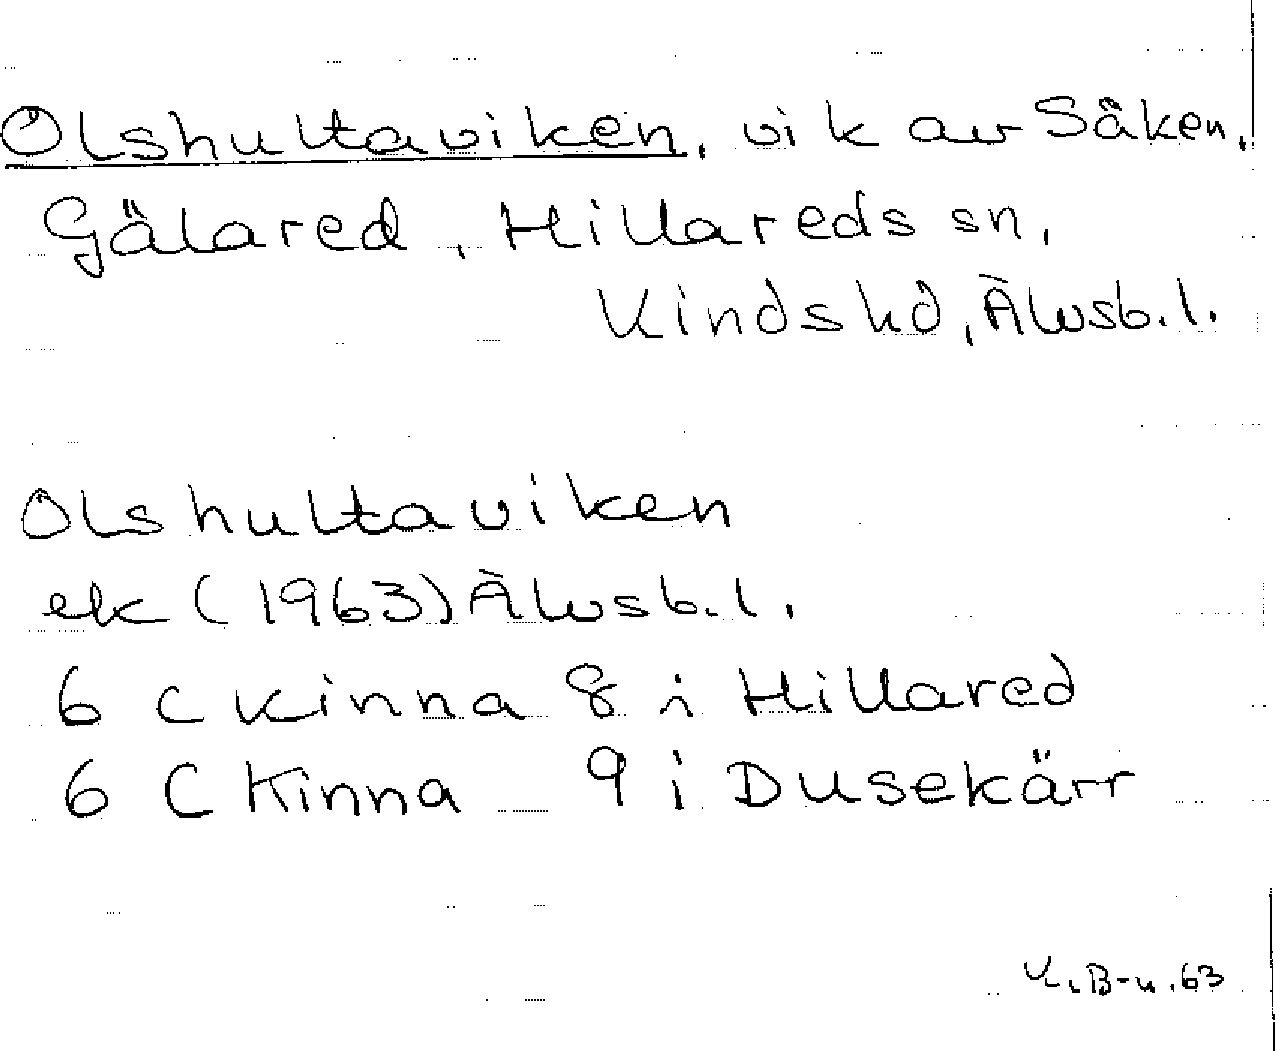 Olshultaviken, vik av Såken,
Gälared, Hillareds sn,
Kinds hd, Älvsb. l.
Olshultaviken
ek (1963) Älvsb. l.
6 C Kinna 8 i Hillared
6 C Kinna 9 i Dusekärr
B-n. 63